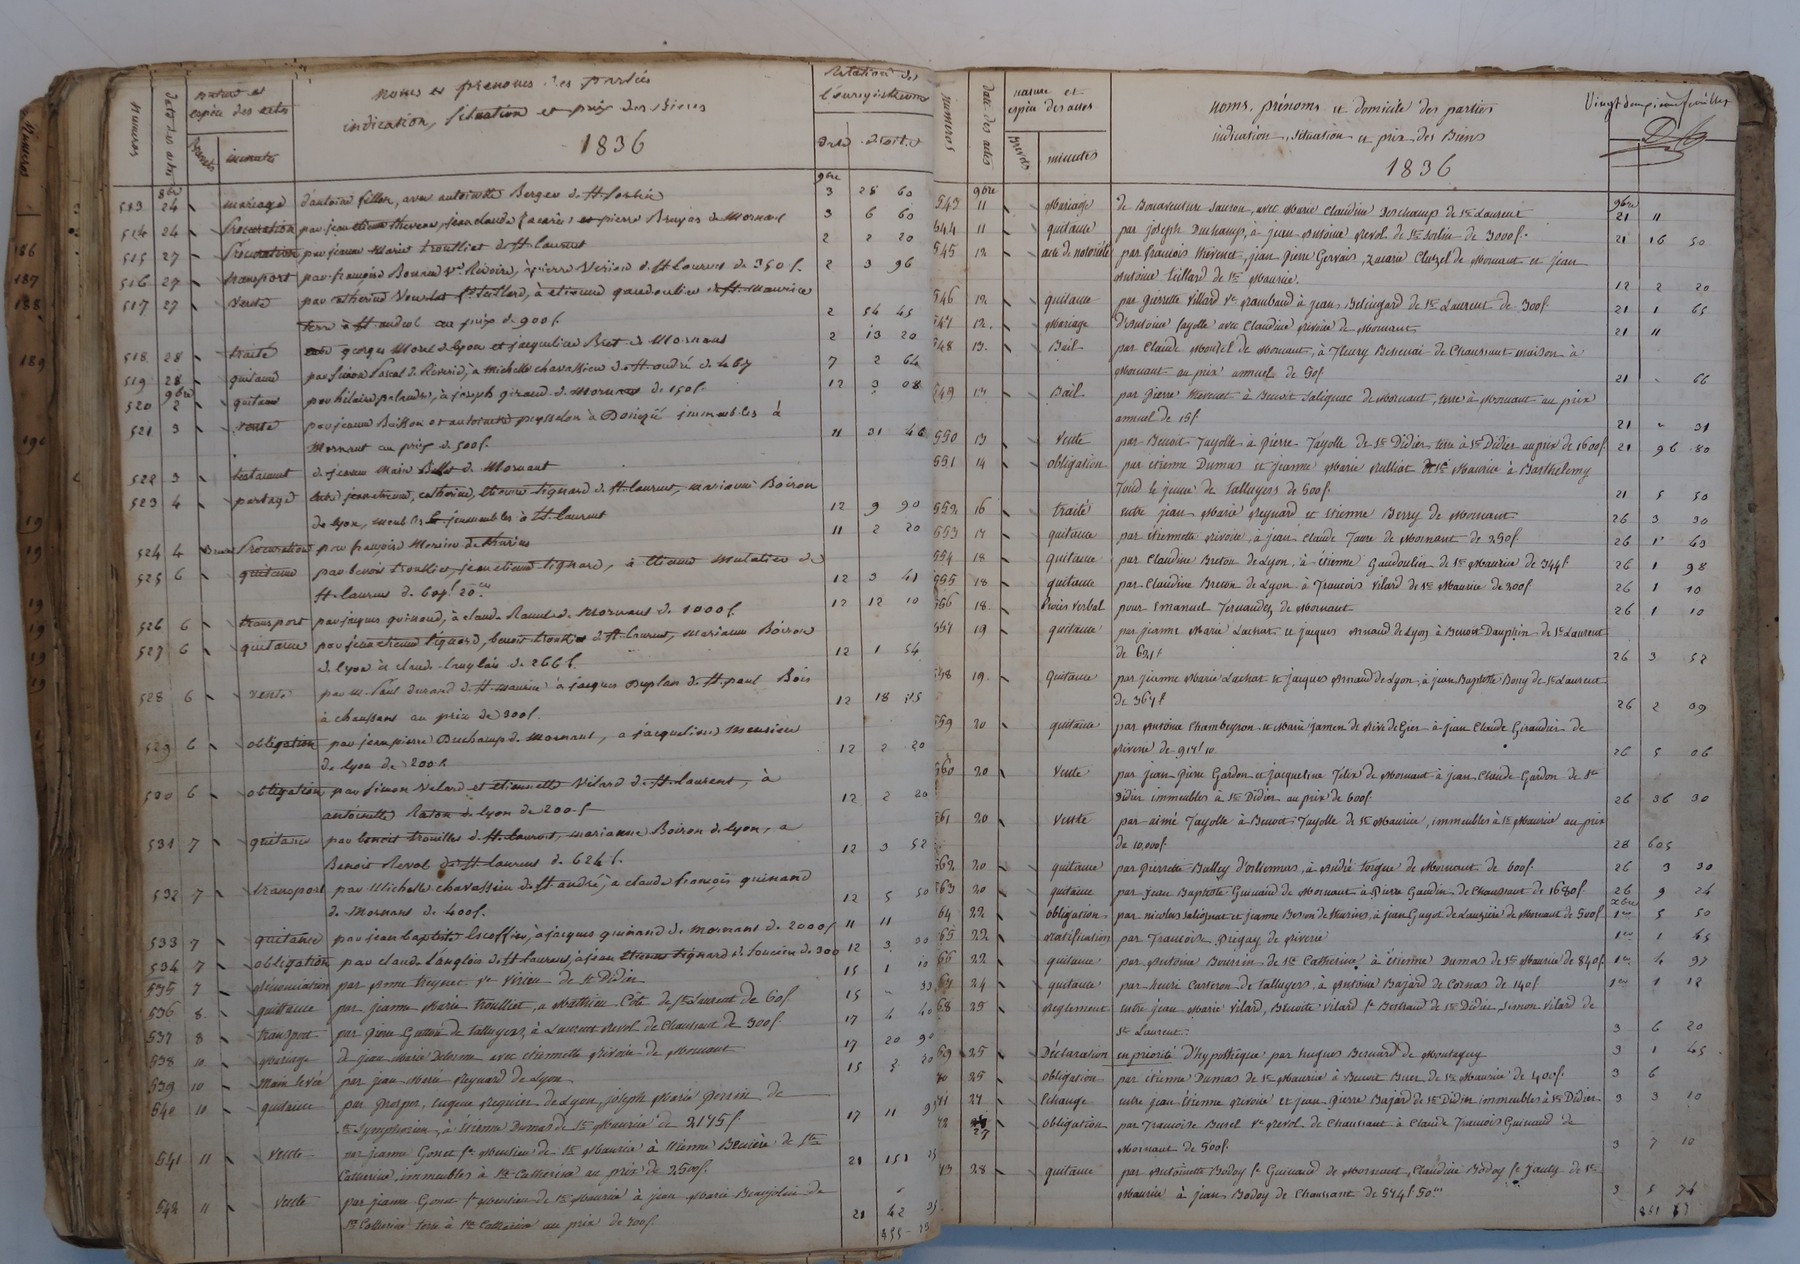 numeros
date des actes
nature et
espèce des actes
Brevets
minutes
noms et prenoms des parties
indication, situation et prix des Biens
1836
Relation de
l'enregistrement
date droits
8bre 9bre
513 24 mariage d'antoine fillon, avec antoinette Berger de St Sorlin 3 28 60
514 24 Procuration par jean etienne thevenet, jean claude Zacarie et pierre Bruyas de Mornant 3 6 60
515 27 Procuration par jeanne Marie troulliet de St laurent 2 2 20
516 27 transport par françoise Bonnard Ve Rivoire, à pierre Verion de St Laurent de 350 f. 2 3 96
517 27 vente par catherine fe teillard, à etienne gaudoulier de St Maurice
terre à St andéol au prix de 900 f. 2 54 45
518 28 traité entre georges Morel de lyon et jacqueline Bret de Mornant 2 13 20
519 28 quitance par Simon Pascal de Riverie, a Michelle chavassieu de St andré de 467 7 2 64
9bre
520 2 quitance par hilaire palandre, à joseph giraud de Mornant de 150 f. 12 3 08
521 3 vente par jeanne Buisson et antoinette peysselon à Donzé immeubles à
Mornant au prix de 500 f. 11 31 46
522 3 testament de jeanne Marie de Mornant
523 4 partage entre jean etienne, catherine, Etienne tignard de St laurent, marianne Boiron
de lyon, meubles et immeubles à St laurent 12 9 90
524 4 Brevet Procuration par françois de Thurins 11 2 20
525 6 quitance par benoit troulliet, jean etienne tignard, à Etienne Mulatier de
St laurent de 604 f. 20 ces 12 3 41
526 6 transport par jacques guinand, à claude Raoul de Mornant de 1000 f. 12 12 10
527 6 quitance par jean etienne tignard, benoit troulliet de St laurent, marianne Boiron
de lyon à claude langlois de 266 f. 12 1 54
528 6 vente par m. Paul durand de St maurice à jacques Duplan de St paul Bois
à chaussans au prix de 300 f. 12 18 75
529 6 obligation par jean pierre Duchamp de mornant, a jacqueline
de lyon de 200 f. 12 2 20
530 6 obligation par simon Velard et etiennette Vilard de St laurent, à
antoinette Raton de lyon de 200 f. 12 2 20
531 7 quitance par benoit trouillet de St laurent, marianne Boiron de lyon, a
Benoit Revol de St laurent de 624 f. 12 3 52
532 7 transport par Michelle chavassieu de St andré, a claude françois guinand
de Mornant de 400 f. 12 5 50
533 7 quitance par jean baptiste Escoffier, à jacques guinand de mornant de 2000 f 11 11
534 7 obligation par claude Langlois de St Laurent, à jean etienne tignard de Soucieu de 300 12 3 30
535 7 renonciation par anne treynet ve Vérieu de St Didier 15 1 10
536 8 quittance par jeanne Marie troulliet, a Mathieu Côte de St Laurent de 60 f. 15 " 33
537 8 transport par pierre Gutton de talluyers, à Laurent Revol de Chaussant de 300 f. 17 4 40
538 10 Mariage de jean Marie Delorme avec etiennette Rivoire de Mornant 17 20 90
539 10 Main levée par jean Marie Reynard de Lyon 15 2 20
540 10 quitance par Prosper, Eugène Reguier de Lyon, joseph Marie Perrin de
St Symphorien, à Etienne Dumas de St Maurice de 2175 f. 17 11
541 11 Vente par jeanne Gonet fe Mensieu de St Maurice à Etienne Benière de Ste
Catherine, immeubles à Ste Catherine au prix de 2500 f. 21 151 25
542 11 Vente par jeanne Gonet fe Mensieu de St Maurice à jean Marie Beaujolin de
Ste Catherine terre à Ste Catherine au prix de 700 f. 21 42 35
numéros
date des actes
nature et
espèce des actes
Brevets
minutes
noms, prénoms et domicile des parties
indication, situation et prix des Biens
1836
Vingt deuxieme feuillet
9bre 9bre
543 11 Mariage de Bonaventure Sauron, avec Marie Claudine Deschamp de St Laurent 21 11
544 11 quitance par joseph Duchamp, à jean Antoine Revol de St Sorlin de 3000 f. 21 16 50
545 12 acte de notoriété par françois Thévenet, jean pierre Gervais, Zacarie Cluzel de Mornant et jean
Antoine teillard de St Maurice 12 2 20
546 12 quitance par pierrette Villard ve Raimbaud à jean Belingard de St Laurent de 300 f. 21 1 65
547 12 Mariage d'Antoine fayolle avec Claudine Rivoire de Mornant 21 11
548 13 Bail par Claude Mondel de Mornant, à Fleury Bessenai de Chaussant maison à
Mornant au prix annuel de 50 f. 21 " 66
549 13 Bail par Pierre Thévenet à Benoit Salignac de Mornant, terre à Mornant au prix
annuel de 15 f. 21 " 31
550 13 Vente par Benoit Fayolle à Pierre Fayolle de St Didier terre à St Didier au prix de 1600 f. 21 96 80
551 14 obligation par étienne Dumas et jeanne Marie Rulliat de St Maurice à Barthelemy
Fond le jeune de talluyers de 500 f. 21 5 50
552 16 traité entre jean Marie Reynard et étienne Berry de Mornant 26 3 30
553 17 quitance par etiennette Rivoire, à jean Claude Favre de Mornant de 250 f. 26 1 65
554 18 quitance par Claudine Breton de Lyon, à étienne Gaudoulier de St Maurice de 344 f. 26 1 98
555 18 quitance par Claudine Breton de Lyon à François Vilard de St Maurice de 200 f. 26 1 10
556 18 Procès verbal pour Emanuel Fernandez de Mornant 26 1 10
557 19 quitance par jeanne Marie Lachat et jacques Arnaud de Lyon à Benoit Dauphin de St Laurent
de 621 f 26 3 52
558 19 Quitance par jeanne Marie Lachat et jacques Arnaud de Lyon, à jean Baptiste Bony de St Laurent
de 367 f 26 2 09
559 20 quitance par Antoine Chambeyron et Marie Jamen de Rive de Gier à jean Claude Giraudier de
Riverie de 917 f 10 26 5 06
560 20 Vente par jean Pierre Gardon et jacqueline Félix de Mornant à jean Claude Gardon de St
Didier immeubles à St Didier au prix de 600 f. 26 36 30
561 20 Vente par aimé Fayolle à Benoit Fayolle de St Maurice, immeubles à St Maurice au prix
de 10,000 f. 28 605
562 20 quitance par pierrette Balley d'orliennas, à André torgue de Mornant de 600 f. 26 3 30
563 20 quitance par jean Baptiste Guinand de Mornant à Pierre Gaudin de Chaussant de 1680 f. 26 9 24
xbre
64 22 obligation par nicolas Salignat et jeanne Besson de Thurins, à jean Guyot de Lauzière de Mornant de 500 f. 1er 5 50
65 22 Ratification par Francoise Prégay de Riverie 1er 1 65
66 22 quitance par Antoine Boursin de Ste Catherine à étienne Dumas de St Maurice de 840 f. 1er 4 97
67 24 quitance par henri Carteron de talluyers, à Antoine Bajard de Cornas de 140 f 1er 1 12
68 25 Reglement entre jean Marie Vilard, Benoite Vilard fe Bertrand de St Didier, Simon Vilard de
St Laurent 3 6 20
69 25 Déclaration en priorité d'hypothèque par hugues Bernard de Montagny 3 1 45
70 25 obligation par étienne Dumas de St Maurice à Benoit Buer de St Maurice de 400 f. 3 6
71 27 Echange entre jean Etienne Rivoire et jean Pierre Bajard de St Didier immeubles à St Didier 3 3 10
72 27 obligation par Françoise Burel Ve Revol de Chaussant à Claude François Guinand de
Mornant de 500 f. 3 7 10
73 28 quitance par Antoinette Bodoy fe Guinand de Mornant, Claudine Bodoy fe Fauty de St
Maurice à jean Bodoy de Chaussant de 574 f 50 ces 3 5 74